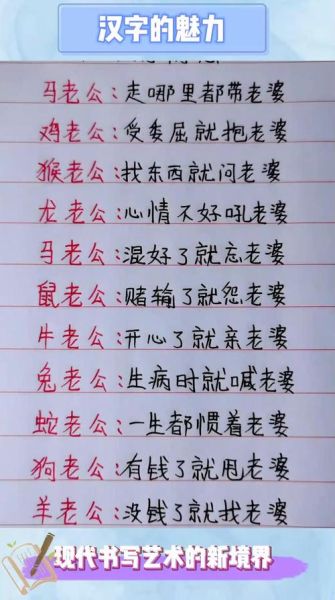 汉字的魅力
马老公:走哪里都带老婆
鸡老公:受委屈就抱老婆
猴老公:找东西就问老婆
龙老公:心情不好吼老婆
马老公:混好了就忘老婆
鼠老公:赌输了就怨老婆
牛老公:开心了就亲老婆
兔老公:生病时就喊老婆
蛇老公:一生都惯着老婆
狗老公:有钱了就甩老婆
羊老公:没钱了就找老婆
现代书写艺术的新境界